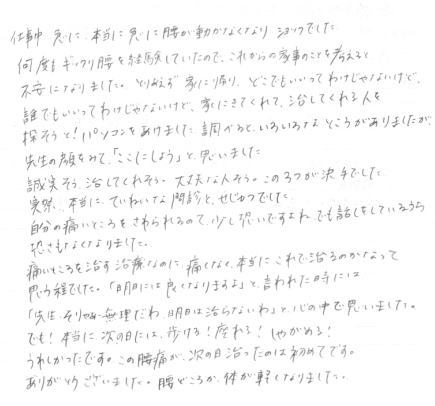 仕事中 急に、本当に急に腰が動かなくなり ショックでした
何度もギックリ腰を経験していたので、これからの家事のことを考えると
不安になりました。とりあえず家に帰り、どこでもいいってわけじゃないけど、
誰でもいいってわけじゃないけど、家にきてくれて、治してくれる人を
探そうと!パソコンをあけました 調べると、いろいろなところがありましたが、
先生の顔をみて、「ここにしよう」と思いました
誠実そう、治してくれそう。大丈夫な人そう。この3つが決手でした
実際、本当に、ていねいな問診と、せじゅつでした。
自分の痛いところをさわられるので、少し恐いですよね。でも話しをしているうち
恐さもなくなりました。
痛いところを治す治療なのに、痛くなく、本当に これで治るのかなって
思う程でした。「明日には良くなりますよ」と、言われた時には
「先生、そりゃぁ無理だわ、明日は治らないわ」と、心の中で思いました。
でも!本当に、次の日には、歩ける!座れる! しゃがめる!
うれしかったです。この腰痛が、次の日治ったのは初めてです。
ありがとうございました。腰どころか、体が軽くなりました。